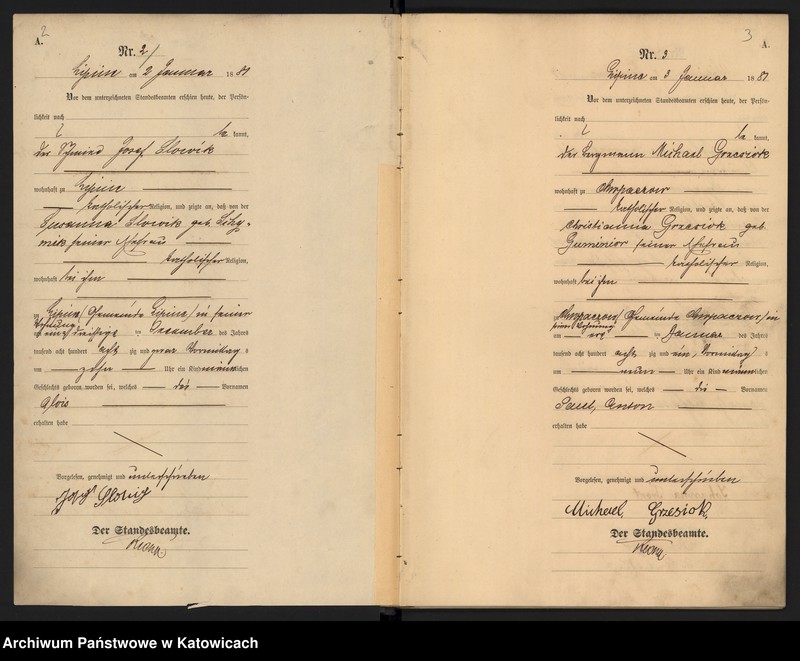 2
A.
Nr. 2/
Lipine am 2 Januar 1881
Vor dem unterzeichneten Standesbeamten erschien heute, der Persön-
lichkeit nach
be kannt,
der Schmied Josef Slowik
wohnhaft zu Lipine
katholischer Religion, und zeigte an, daß von der
Susanna Slowik geb.
seiner Ehefrau
katholischer Religion,
wohnhaft bei ihm
zu Lipine/Gemeinde Lipine/in seiner
Wohnung
am ein und dreißigsten Dezember des Jahres
tausend acht hundert acht zig und Vormittag s
um zehn Uhr ein Kind männlichen
Geschlechts geboren worden sei, welches die Vornamen
Alois
erhalten habe
Vorgelesen, genehmigt und unterschrieben
Der Standesbeamte.
3
A.
Nr. 3
Lipine am 3 Januar 1881
Vor dem unterzeichneten Standesbeamten erschien heute, der Persön-
lichkeit nach
be kannt,
der Bergmann Michael Grzesiok
wohnhaft zu Chropaczow
katholischer Religion, und zeigte an, daß von der
Christianna Grzesiok geb.
seiner Ehefrau
katholischer Religion,
wohnhaft bei ihm
zu Chropaczow/Gemeinde Chropaczow/in
seiner Wohnung
am Januar des Jahres
tausend acht hundert acht zig und ein, Vormittag s
um neun Uhr ein Kind männlichen
Geschlechts geboren worden sei, welches die Vornamen
Paul, Anton
erhalten habe
Vorgelesen, genehmigt und unterschrieben
Michael Grzesiok.
Der Standesbeamte.
Archiwum Państwowe w Katowicach